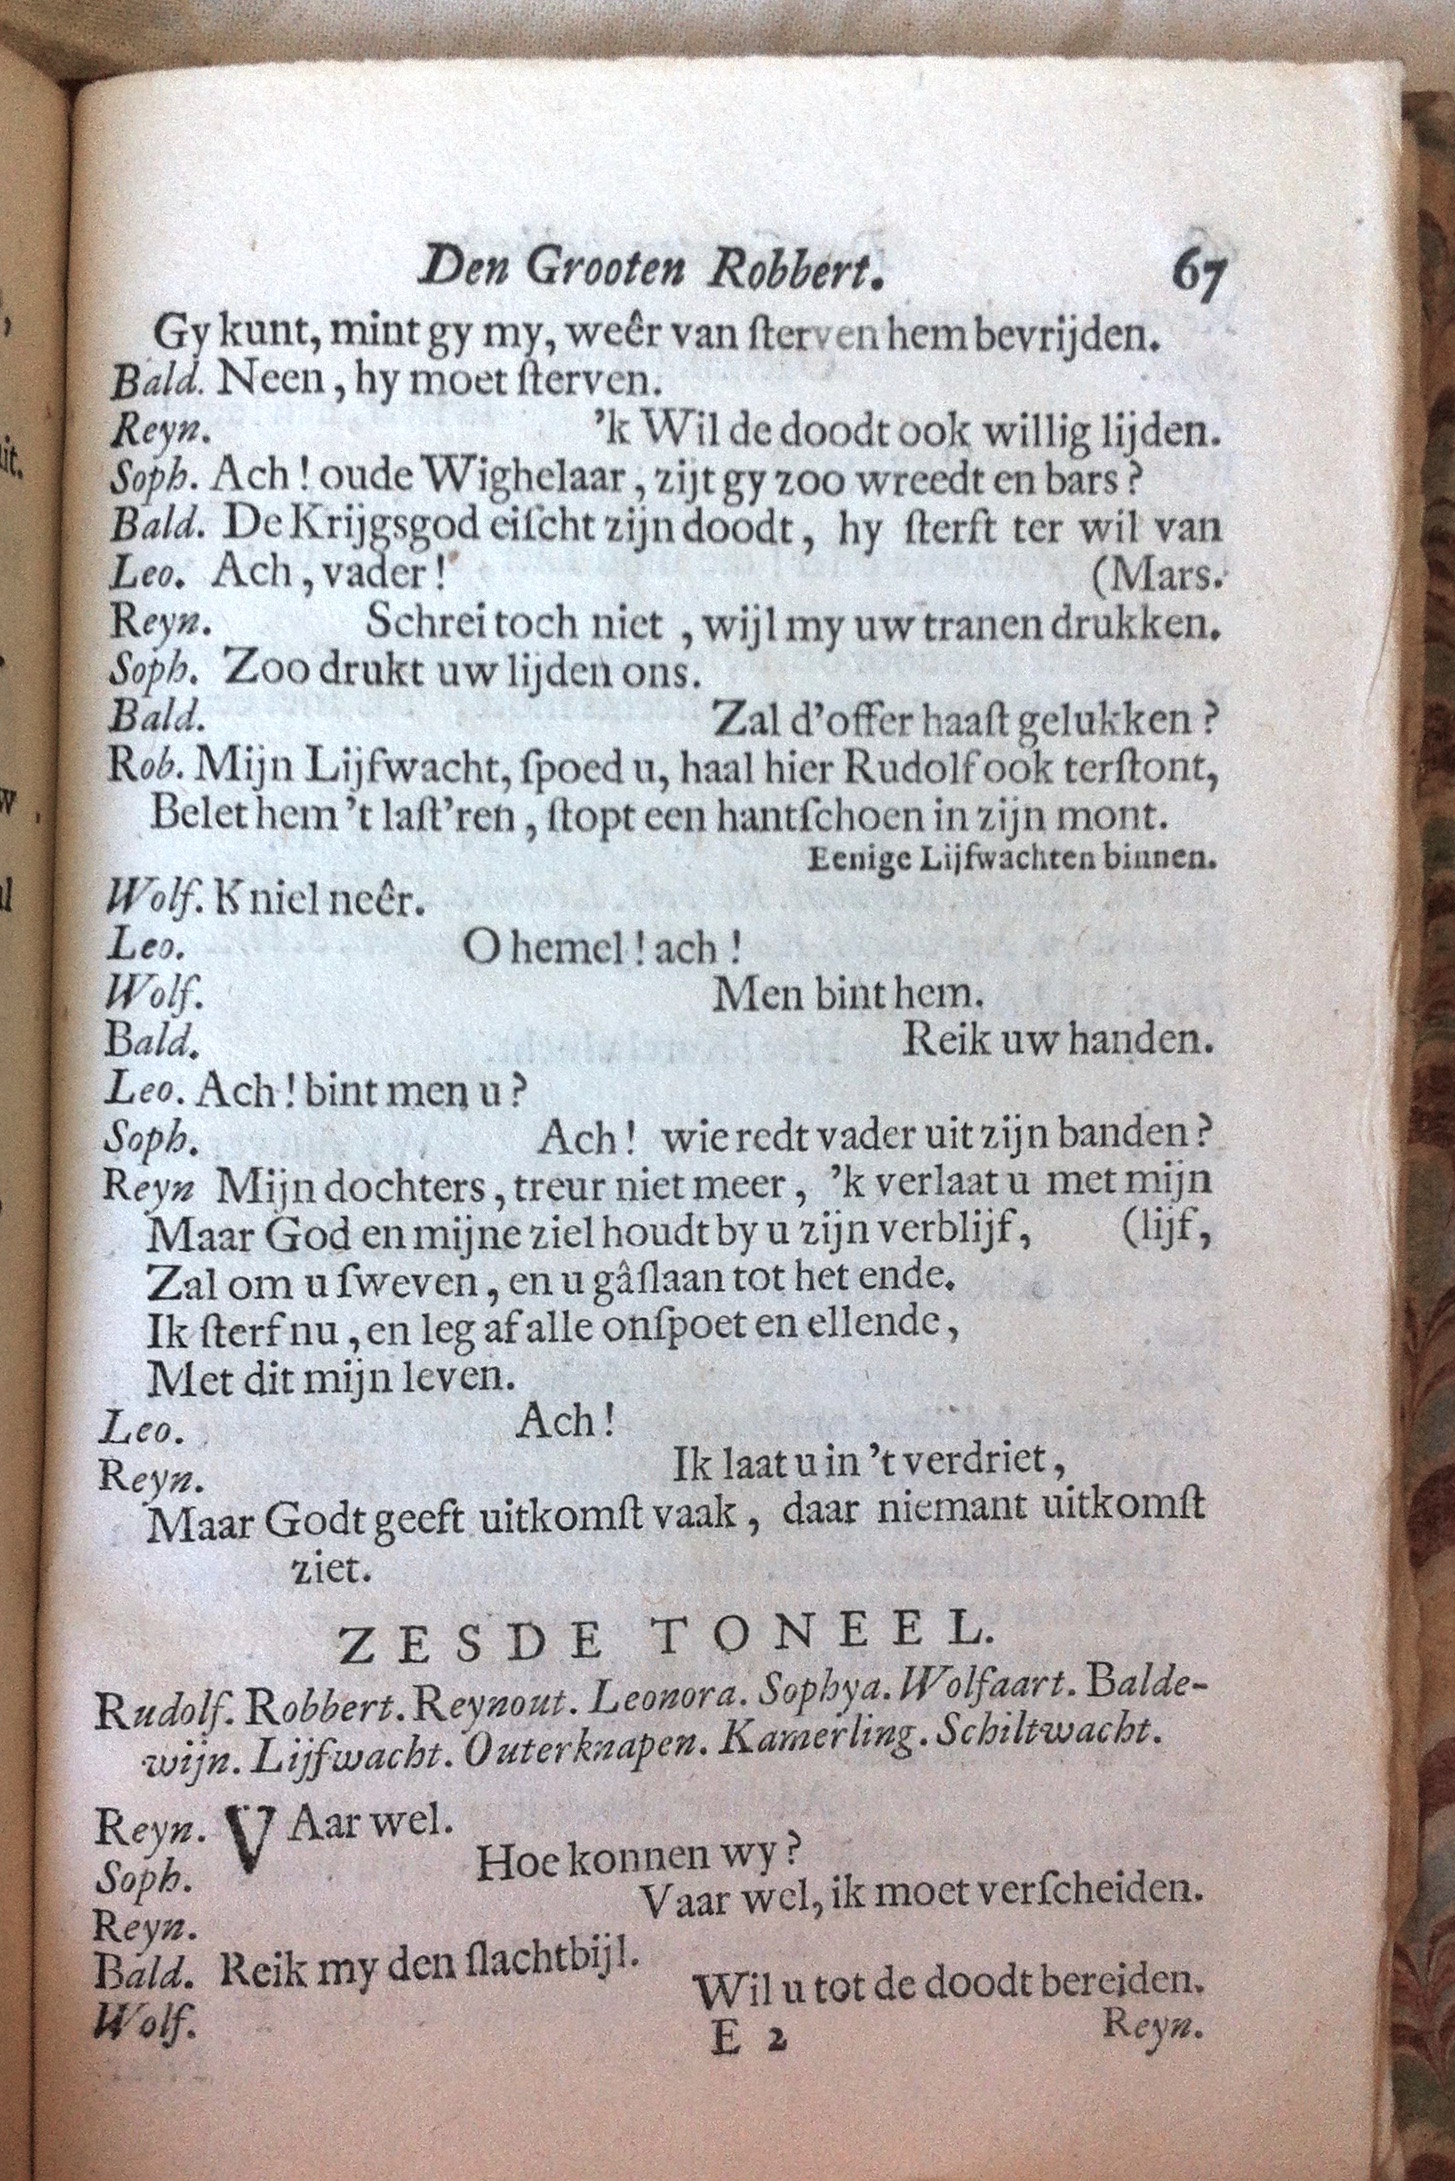 Den Grooten Robbert. 67
Gy kunt, mint gy my, weêr van ſterven hem bevrijden.
Bald. Neen, hy moet ſterven.
Reyn. 'k Wil de doodt ook willig lijden.
Soph. Ach! oude Wighelaar, zijt gy zoo wreedt en bars?
Bald. De Krijgsgod eiſcht zijn doodt, hy ſterft ter wil van
Leo. Ach, vader! (Mars.
Reyn. Schrei toch niet, wijl my uw tranen drukken.
Soph. Zoo drukt uw lijden ons.
Bald. Zal d'offer haaſt gelukken?
Rob. Mijn Lijfwacht, ſpoed u, haal hier Rudolf ook terſtont,
Belet hem 't laſt'ren, ſtopt een hantſchoen in zijn mont.
Eenige Lijfwachten binnen.
Wolf. Kniel neêr.
Leo. O hemel! ach!
Wolf. Men bint hem.
Bald. Reik uw handen.
Leo. Ach! bint men u?
Soph. Ach! wie redt vader uit zijn banden?
Reyn Mijn dochters, treur niet meer, 'k verlaat u met mijn
Maar God en mijne ziel houdt by u zijn verblijf, (lijf,
Zal om u ſweven, en u gâſlaan tot het ende.
Ik ſterf nu, en leg af alle onſpoet en ellende,
Met dit mijn leven.
Leo. Ach!
Reyn. Ik laat u in 't verdriet,
Maar Godt geeft uitkomſt vaak, daar niemant uitkomſt
ziet.
ZESDE TONEEL.
Rudolf. Robbert. Reynout. Leonora. Sophya. Wolfaart. Balde-
wijn. Lijfwacht. Outerknapen. Kamerling. Schiltwacht.
Reyn. VAar wel.
Soph. Hoe konnen wy?
Reyn. Vaar wel, ik moet verſcheiden.
Bald. Reik my den ſlachtbijl.
Wolf. Wil u tot de doodt bereiden.
E 2 Reyn.